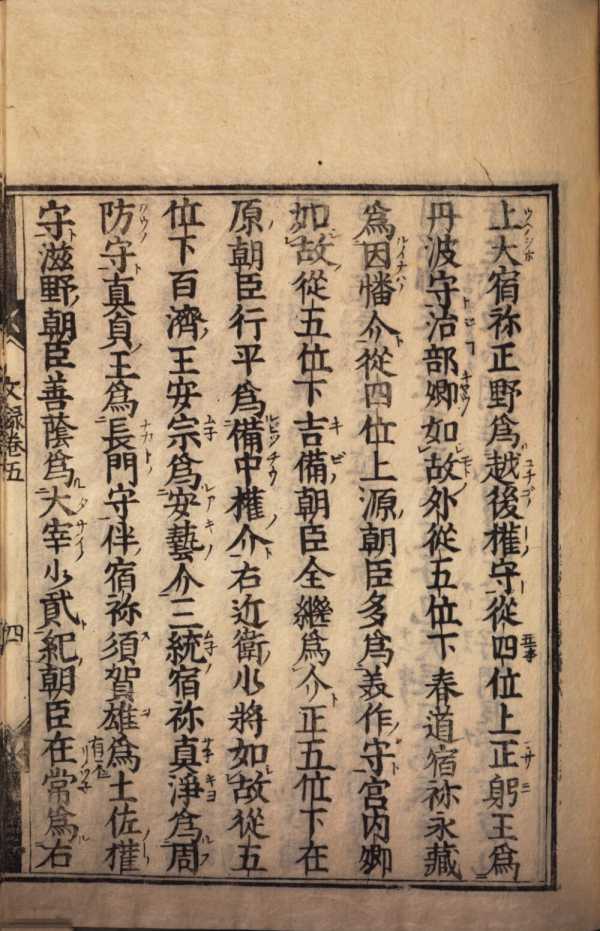 上大宿祢正野爲越後權守從四位上正躬王爲
丹波守治部卿如故外從五位下春道宿祢永藏
爲因幡介從四位上源朝臣多爲美作守宮内卿
如故從五位下吉備朝臣全繼爲介正五位下在
原朝臣行平爲備中權介右近衛少將如故從五
位下百濟王安宗爲安藝介三統宿祢真淨爲周
防守真貞王爲長門守伴宿祢須賀雄爲土佐權
守滋野朝臣善蔭爲大宰少貳紀朝臣在常爲右
文録卷五
四